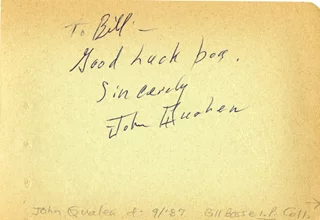 To Bill —
Good Luck boy.
Sincerely
John Qualen
John Qualen d: 9/'87